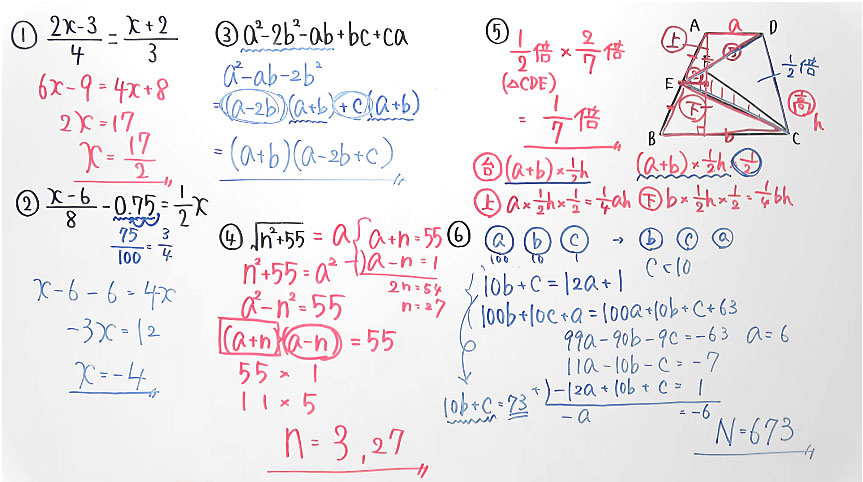 ① (2x-3)/4 = (x+2)/3
6x-9=4x+8
2x=17
x=17/2
② (x-6)/8 - 0.75 = 1/2 x
75/100 = 3/4
x-6-6=4x
-3x=12
x=-4
③ a²-2b²-ab+bc+ca
a²-ab-2b²
=(a-2b)(a+b)+c(a+b)
=(a+b)(a-2b+c)
④ √n²+55 = a
n²+55=a²
a²-n²=55
(a+n)(a-n)=55
55 × 1
11 × 5
a+n=55
-)a-n=1
2n=54
n=27
n=3,27
⑤ 1/2倍 × 2/7倍
(△CDE)
= 1/7倍
A a D
上
E
下
B b C
1/2倍
高 h
台 (a+b)×1/2h
(a+b)×1/2h×1/2
上 a×1/2h×1/2=1/4ah
下 b×1/2h×1/2=1/4bh
⑥ a b c → b c a
100 10 1
c<10
10b+c=12a+1
100b+10c+a=100a+10b+c+63
99a-90b-9c=-63 a=6
11a-10b-c=-7
+)-12a+10b+c=1
-a =-6
10b+c=73
N=673